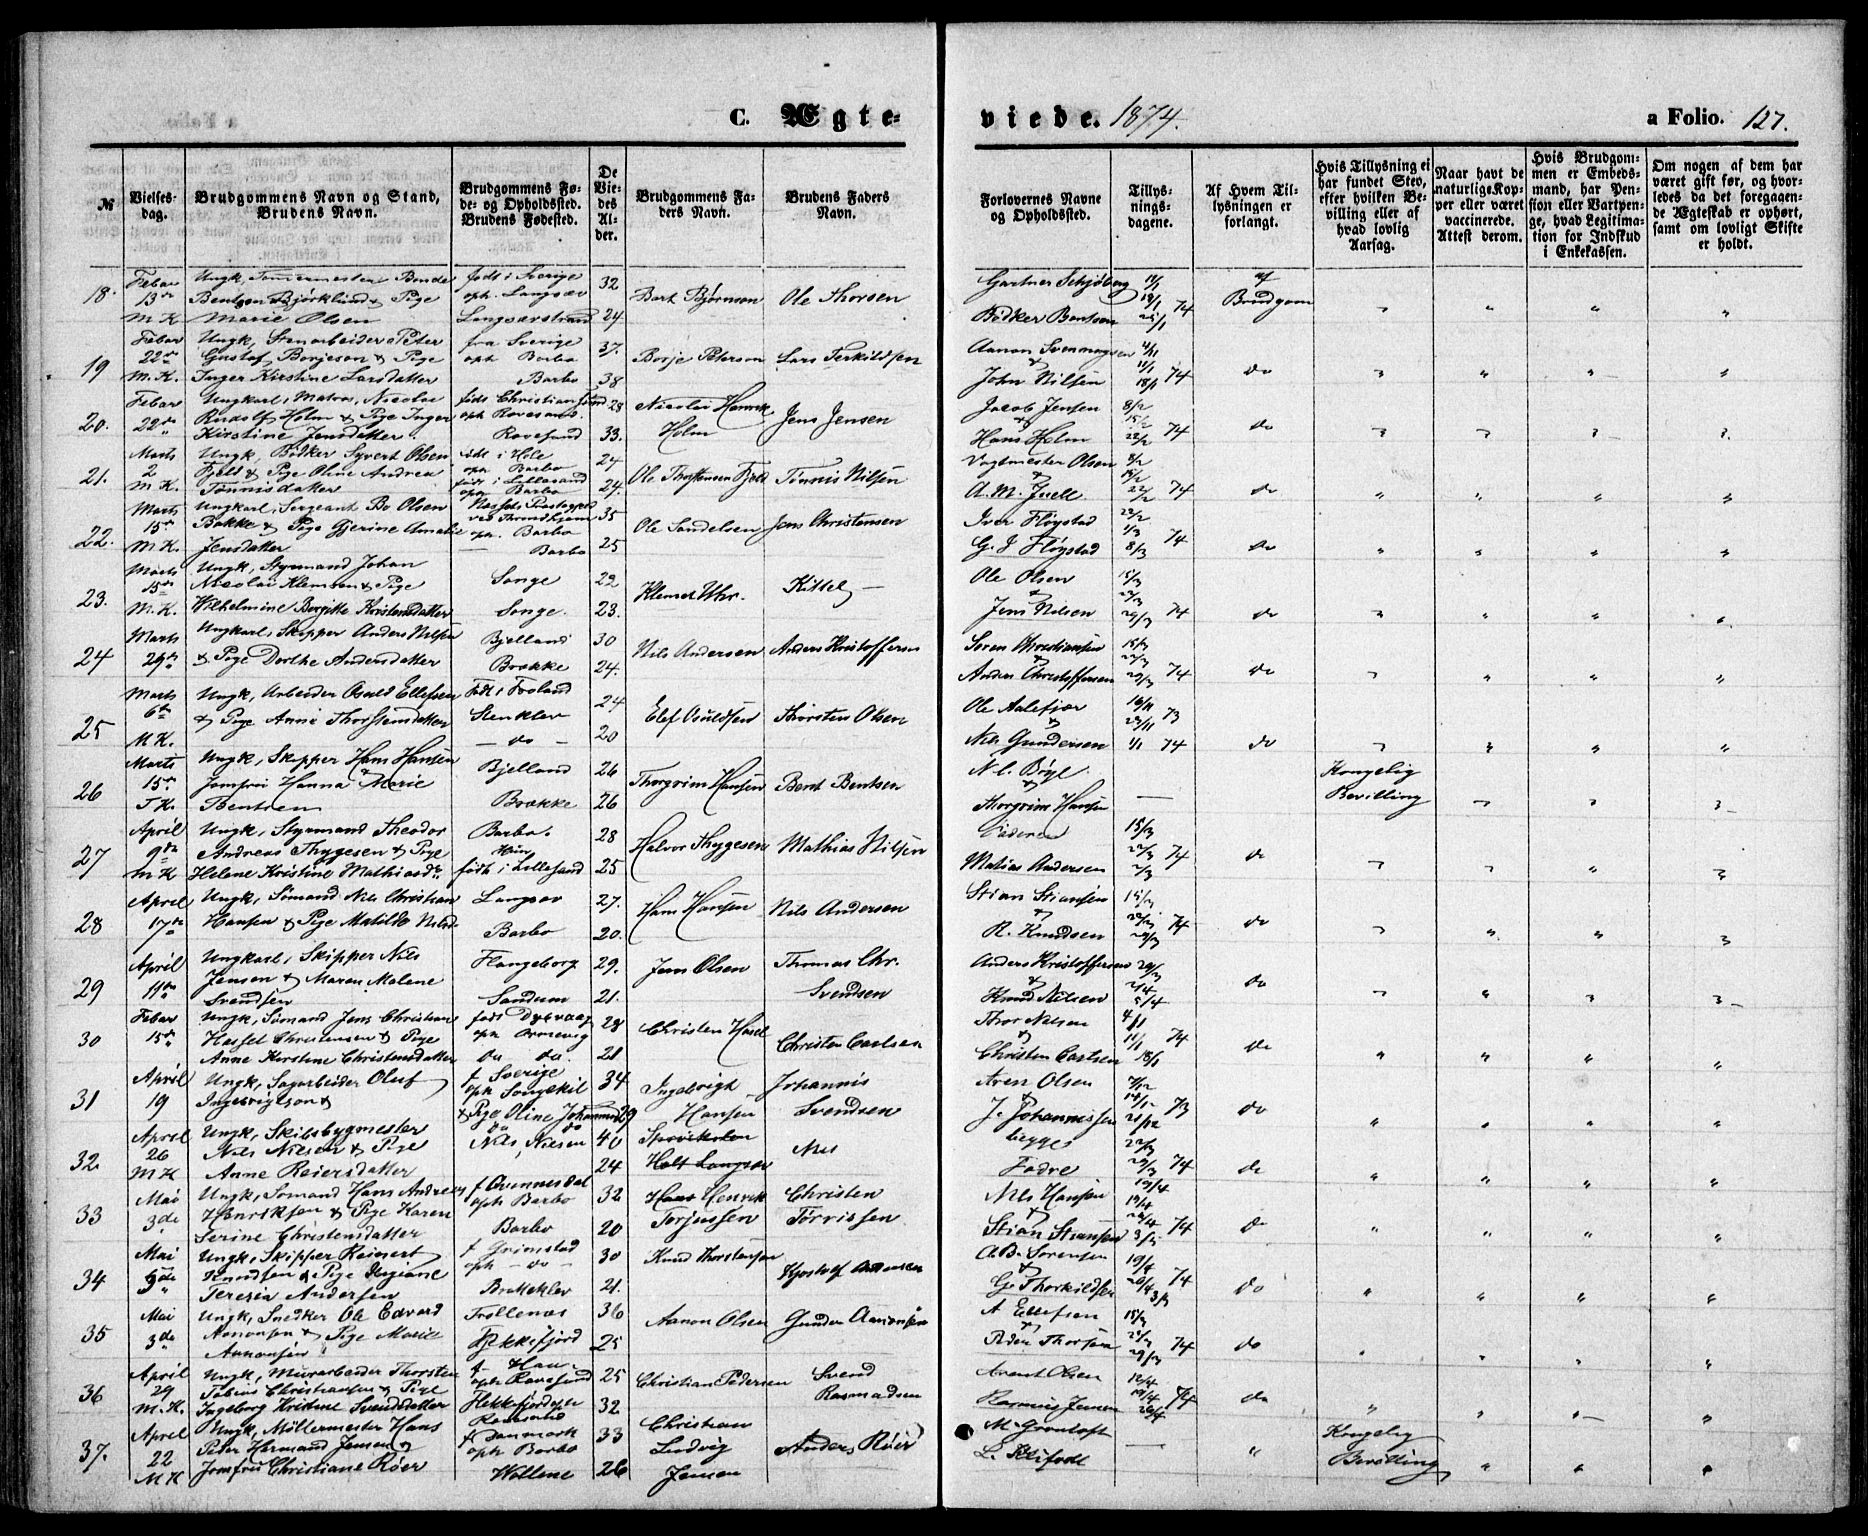 C. Ægte-
viede. 1874.
a Folio. 127.
№
Vielses-
dag.
Brudgommens Navn og Stand,
Brudens Navn.
Brudgommens Fø-
de- og Opholdssted.
Brudens Fødested.
De
Vie-
des
Al-
der.
Brudgommens Fa-
ders Navn.
Brudens Faders
Navn.
Forlovernes Navne
og Opholdssted.
Tillys-
nings-
dagene.
Af Hvem Til-
lysningen er
forlangt.
Hvis Tillysning ei
har fundet Sted,
efter hvilken Be-
villing eller af
hvad lovlig
Aarsag.
Naar havt de
naturlige Kop-
per eller været
vaccinerede.
Attest derom.
Hvis Brudgom-
men er Embeds-
mand, har Pen-
sion eller Vartpen-
ge, hvad Legitima-
tion for Indskud
i Enkekassen.
Om nogen af dem har
været gift før, og hvor-
ledes da det foregaaen-
de Ægteskab er ophørt,
samt om lovligt Skifte
er holdt.
18. Febar 13de M.K.
Ungk, Tømmermester Bonde
Bentson Bjørklund & Pige
Marie Olsen
født i Sverige
oph. Langsæv
Langsævstrand
32
24
Bart Bjørnson
Ole Thorsen
Gartner Schjøberg
Bødker Bentsen
74
af
Brudgom
19 Febar 22de M.K.
Ungk, Stenarbeider Peter
Gustaf Borjeson & Pige
Inger Kirstine Larsdatter
fra Sverige
oph Barbo
Barbo
37.
38
Borje Peterson
Lars Terkildsen
Aanon Svenningsen
&
John Nilsen
74
do
20. Febar 22de
Ungkarl, Matros, Nicolai
Rudolf Holm & Pige Inger
Kirstine Jensdatter.
føds Christiansund
oph Ravesand.
Ravesand
28
33.
Nicolai Henrik
Holm
Jens Jensen
Jacob Jensen 8/2
&
Hans Holm 22/2 74
do
21. Marts 2 M.K.
Ungk, Bødker Syvert Olsen
Fjeld & Pige Oline Andrea
Tønnisdatter
født i Hole
oph Barbo
født i Lillesand
oph Barbo
24
24.
Ole Thorstensen Fjeld
Tønnis Nilsen
Vagtmester Olsen 8/2
&
A. M. Juell 22/2 74
do
22. Marts 15de M.K.
Ungkarl, Sergeant Bo Olsen
Bakke & Pige Gjerine Amalie
Jensdatter
Nessets Præstegjeld
ved Throndhjem
oph. Barbo
— Barbo
35
25
Ole Sandelsen
Jens Christensen
Iver Fløystad 22/2
1/3
G. J Fløystad 8/3 74
do
23. Marts 15de M.K.
Ungk, Styrmand Johan
Nicolai Klemsen & Pige
Wilhelmine Borgitte Kristensdatter
Songe
Songe.
22
23.
Klemet Uhr.
Kittel —
Ole Olsen 15/3
&
Jens Nilsen 29/3 74
do
24 Marts 29de
Ungkarl, Skipper Anders Nilsen
& Pige Dorthe Andersdatter
Bjelland
Brække
30
24.
Nils Andersen
Anders Kristoffersen
Søren Christiansen 15/3
Anders Christoffersen 29/3 74
do
25 Marts 6te M.K.
Ungk, Arbeider Osuld Ellefsen
& Pige Anne Thorstensdatter
Født i Froland
Stenklev
— do —
24
20
Elef Osuldsen
Thorsten Olsen
Ole Aalefjær 16/11
& 23/11 73
Nils Gundersen 1/1 74
do
26 Marts 15de T.K.
Ungk, Skipper Hans Hansen
Jomfru Hanna Marie
Bentsen
Bjelland
Brække
26
26
Thorgrim Hansen
Bernt Bentsen
N. C. Bøge
&
Thorgrim Hansen
—
Kongelig
Bevilling
27 April 9de M.K.
Ungk, Styrmand Theodor
Andreas Thygesen & Pige
Helene Kristine Mathiasdtr
Barbo.
Hun
født i Lillesand
28
25
Halvor Thygesen
Mathias Nilsen
Faderen 15/3
Matias Andersen 74
do
28 April 17de
Ungk, Sømand Nils Christian
Hansen & Pige Matilde Nilsd.
Langsæv
Barbo
27.
20.
Hans Hansen
Nils Andersen
Stian Stiansen 15/3
&
R. Knudsen 29/3 74
do
29 April 11te
Ungkarl, Skipper Nils
Jensen & Maren Malene
Svendsen
Flangeborg
Sandum
29.
21.
Jens Olsen
Thomas Chr.
Svendsen
Anders Kristoffersen 29/3
& 2/4
Knud Nilsen 5/4
do
30 Febar 15de
Ungk, Sømand Jens Christian
Hassel Christensen & Pige
Anne Kirstine Christensdatter
født Dyrvaag
oph Arnevig
do do.
28
21
Christen Hasel
Christen Carlsen
Thor Nilsen 4/1
& 11/1 74
Christen Carlsen 18/1
do
31 April 19
Ungk, Sagarbeider Oluf
Ingebrigtson &
f Sverige
oph Songekil
& Pige Oline Johannesd.
34
29
Ingebrigt
Hansen
Johannis
Svendsen
Aren Olsen 7/12
J. Johannissen 73
do
32. April 26 M K
Ungk, Skibsbygmester
Nils Nilsen & Pige
Anne Reiersdatter
do do
Nils, Nilsen
40
24
Holt Langsæv
Nils
begges
Fædre 29/3 74
do
33 Mai 3de
Ungk, Sømand Hans Andreas
Henriksen & Pige Karen
Serine Christensdatter
f Qvinnesdal
oph Barbo
Barbo
32
20
Hans Henrik
Terjussen
Christen
Torrissen
Nils Hansen
&
Stian Stiansen 3/5 74
do
34 Mai 3de
Ungk, Skipper Reinert
Knudsen & Pige Jegiane
Teresia Andersen
f Grimstad
oph — do —
Brækeklev
30
21.
Knud Thorstensen
Kjostolf Andersen
A. B. Sørensen 19/4
&
G. Thorkildsen 74
do
35 Mai 3de
Ungk, Snedker Ole Edvard
Aanonsen & Pige Marie
Aanonsen
Trollenæs
Flekkefjord
36
25
Aanon Olsen
Gunder Aanonsen
A Ellefsen 15/3
&
Peder Thorsen 29/3 74
do
36 April 29 M.K.
Ungk, Murarbeider Thorsten
Tobias Christiansen & Pige
Ingeborg Kristine Svendsdatter
oph Ravesand
Flekkefjord oph
Ravesand
25
32
Christian Pedersen
Svend
Rasmadsen
Arent Olsen 12/4
19/4
Rasmus Jensen 26/4 74
do
37. April 22 M K
Ungk, Møllermester Hans
Peter Hermand Jensen &
Jomfru Christiane Røer
f Danmark
oph Barbo
Wollene
33
26
Christian
Ludvig
Jensen
Anders Røer
M. Grøntoft
—
Kongelig
Bevilling